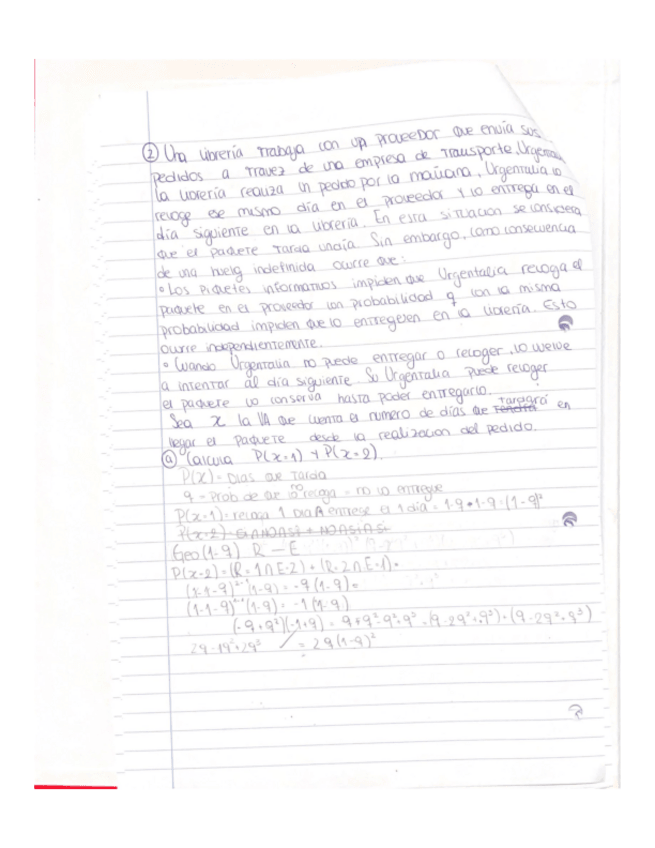 ② Una librería trabaja con un proveedor que envía sus
pedidos a travez de una empresa de transporte, Urgentalia
la librería realiza un pedido por la mañana, Urgentalia lo
recoge ese mismo día en el proveedor y lo entrega en el
día siguiente en la librería. En esta situacion se considera
que el paquete tarda un día. Sin embargo, como consecuencia
de una huelg indefinida ocurre que:
• Los piquetes informativos impiden que Urgentalia recoga el
paquete en el proveedor con probabilidad q con la misma
probabilidad impiden que lo entregesen en la librería. Esto
ocurre independientemente.
• Cuando Urgentalia no puede entregar o recoger, lo vuelve
a intentar al día siguiente. Si Urgentalia puede recoger
el paquete lo conserva hasta poder entregarlo.
Sea x la VA que cuenta el numero de días que tardará en
llegar el paquete desde la realizacion del pedido.
ⓐ Calcula P(x=1) y P(x=2).
P(x)= Dias que tarda
q = Prob de que no recoga = no lo entregue
P(x=1)= recoga 1 dia ∩ entrege el 1 día = 1-q • 1-q = (1-q)²
P(x=2)
Geo(1-q) R — E
P(x=2)=(R=1∩E=2)+(R=2∩E=1)=
(1-1-q)²⁻¹(1-q)= -q(1-q)=
(1-1-q)¹⁻¹(1-q)= -1(1-q)
(-q+q²)(-1+q) = q+q²-q²+q³ = (q-2q²+q³)+(q-2q²+q³)
2q-4q²+2q³ = 2q(1-q)²